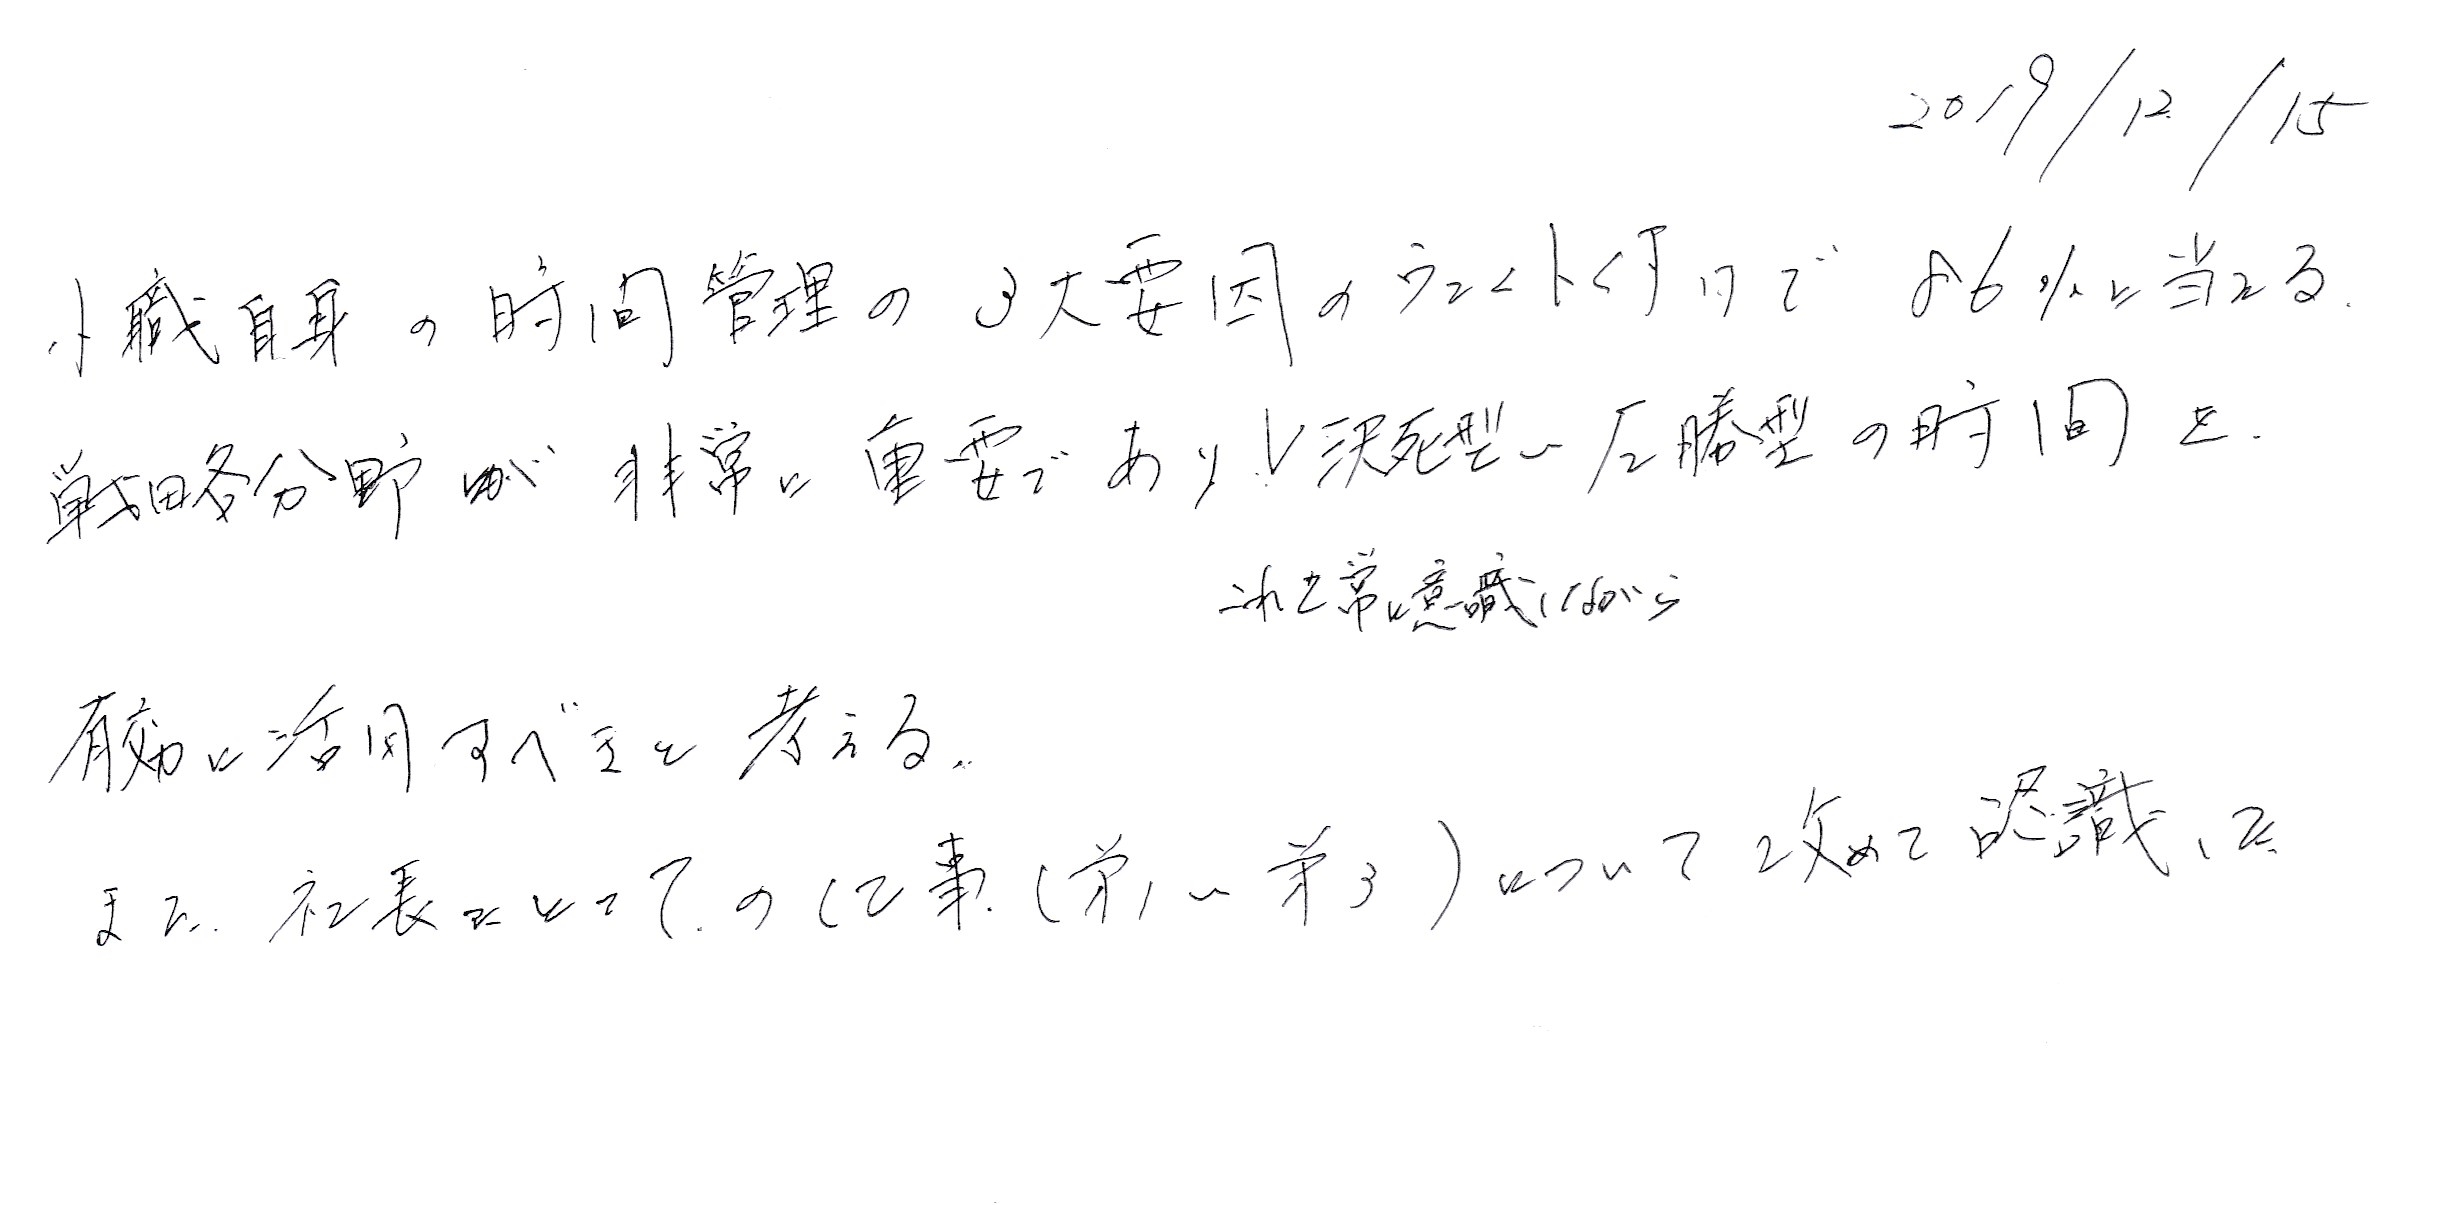 2019/12/15
小職自身の時間管理の3大要因のウエイト付けで86%に当たる
戦略各分野が非常に重要であり、決死型～圧勝型の時間を
これを常に意識しながら
有効に活用すべきと考える。
また、社長にとっての仕事(第1～第3)について改めて認識した